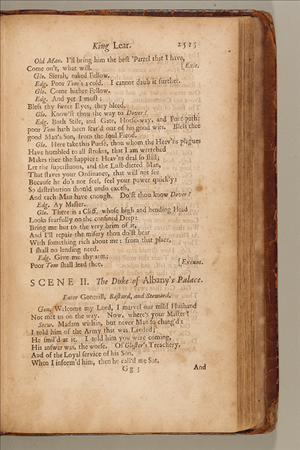 King Lear. 2515
Old Man. I'll bring him the best 'Parrel that I have,
Come on't, what will. [Exit.
Glo. Sirrah, naked Fellow.
Edg. Poor Tom's a cold. I cannot daub it further.
Glo. Come hither Fellow.
Edg. And yet I must;
Bless thy sweet Eyes, they bleed.
Glo. Know'st thou the way to Dover?
Edg. Both Stile, and Gate, Horse-way, and Foot-path:
poor Tom hath been scar'd out of his good wits. Bless thee
good Man's Son, from the foul Fiend.
Glo. Here take this Purse, thou whom the Heav'ns plagues
Have humbled to all strokes, that I am wretched
Makes thee the happier: Heav'ns deal so still;
Let the superfluous, and the Lust-dieted Man,
That slaves your Ordinance, that will not see
Because he do's not feel, feel your power quickly;
So distribution should undo excess,
And each Man have enough. Do'st thou know Dover?
Edg. Ay Master.
Glo. There is a Cliff, whose high and bending Head
Looks fearfully on the confined Deep:
Bring me but to the very brim of it,
And I'll repair the misery thou do'st bear
With something rich about me: from that place,
I shall no leading need.
Edg. Give me thy arm;
Poor Tom shall lead thee. [Exeunt.
SCENE II. The Duke of Albany's Palace.
Enter Gonerill, Bastard, and Steward.
Gon. Welcome my Lord, I marvel our mild Husband
Not met us on the way. Now, where's your Master?
Stew. Madam within, but never Man so chang'd:
I told him of the Army that was Landed;
He smil'd at it. I told him you were coming,
His answer was, the worse. Of Gloster's Treachery,
And of the Loyal service of his Son,
When I inform'd him, then he call'd me Sot,
Gg 3 And